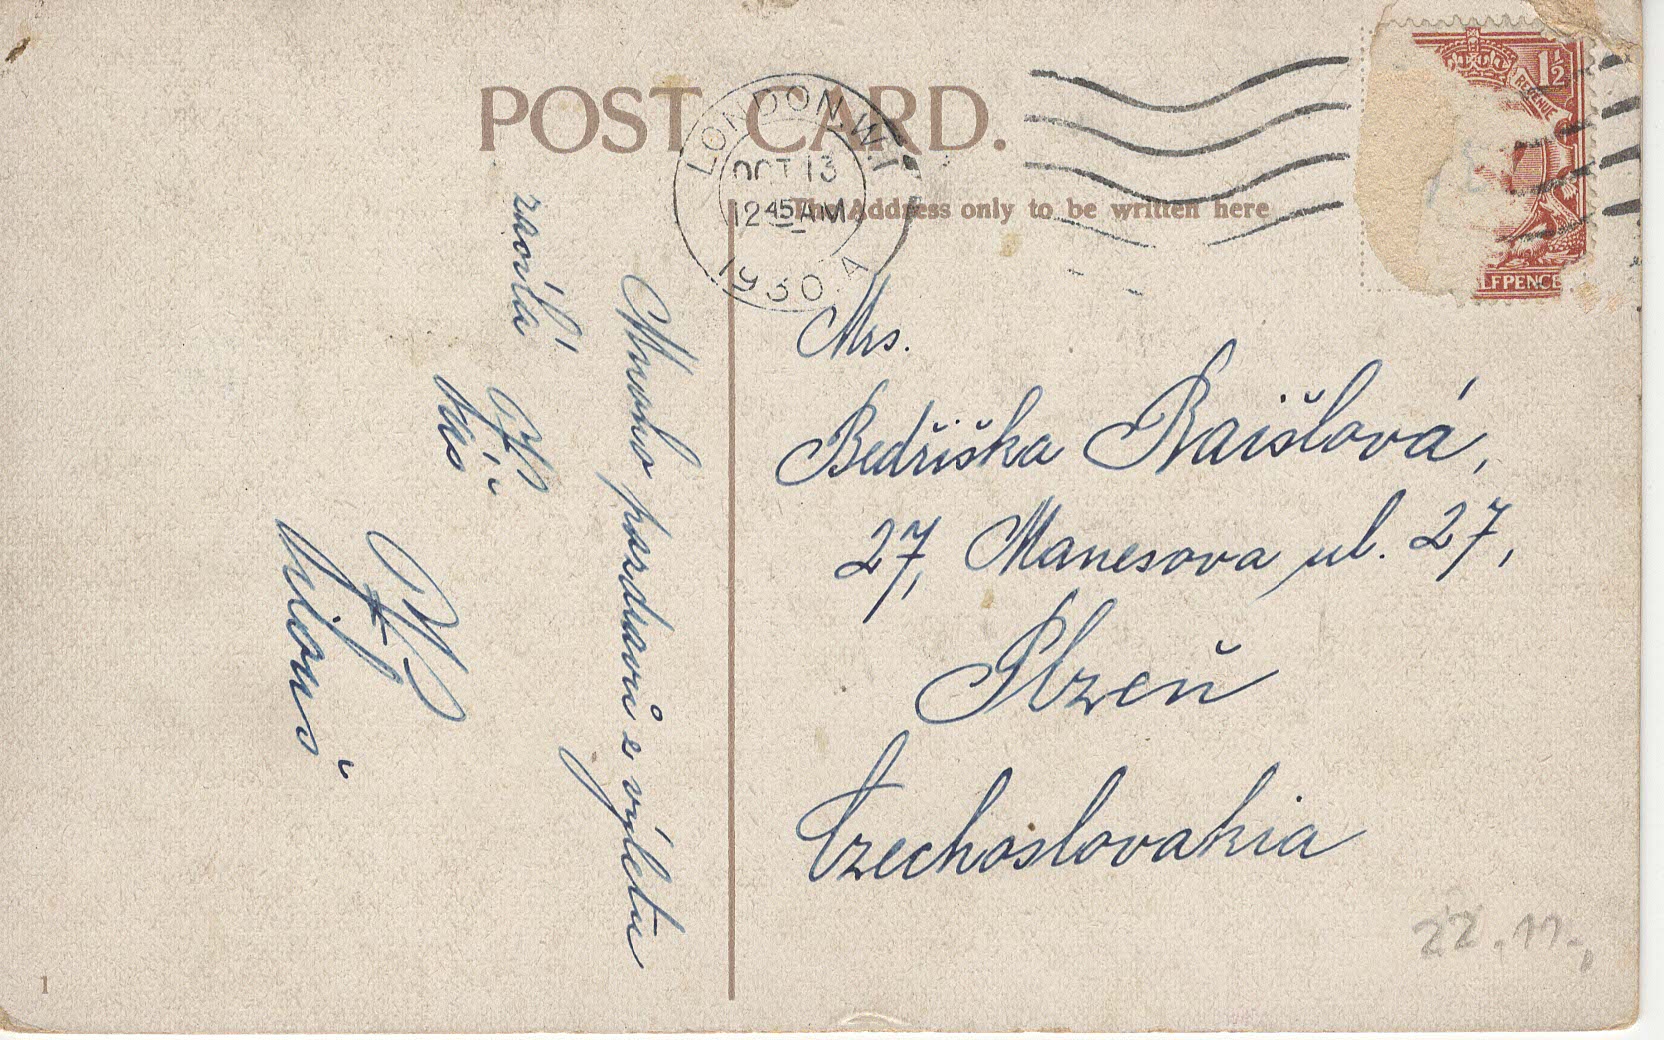 POST CARD.
LONDON. W.1
OCT 13
12 45 AM
1930. A
1½
REVENUE
LFPENCE
The Address only to be written here
Mnoho pozdravů z výletu
zasílá
Vás
Mrs.
Bedřiška Raišlová,
27, Manesova ul. 27,
Plzeň
Czechoslovakia
22.11.
1